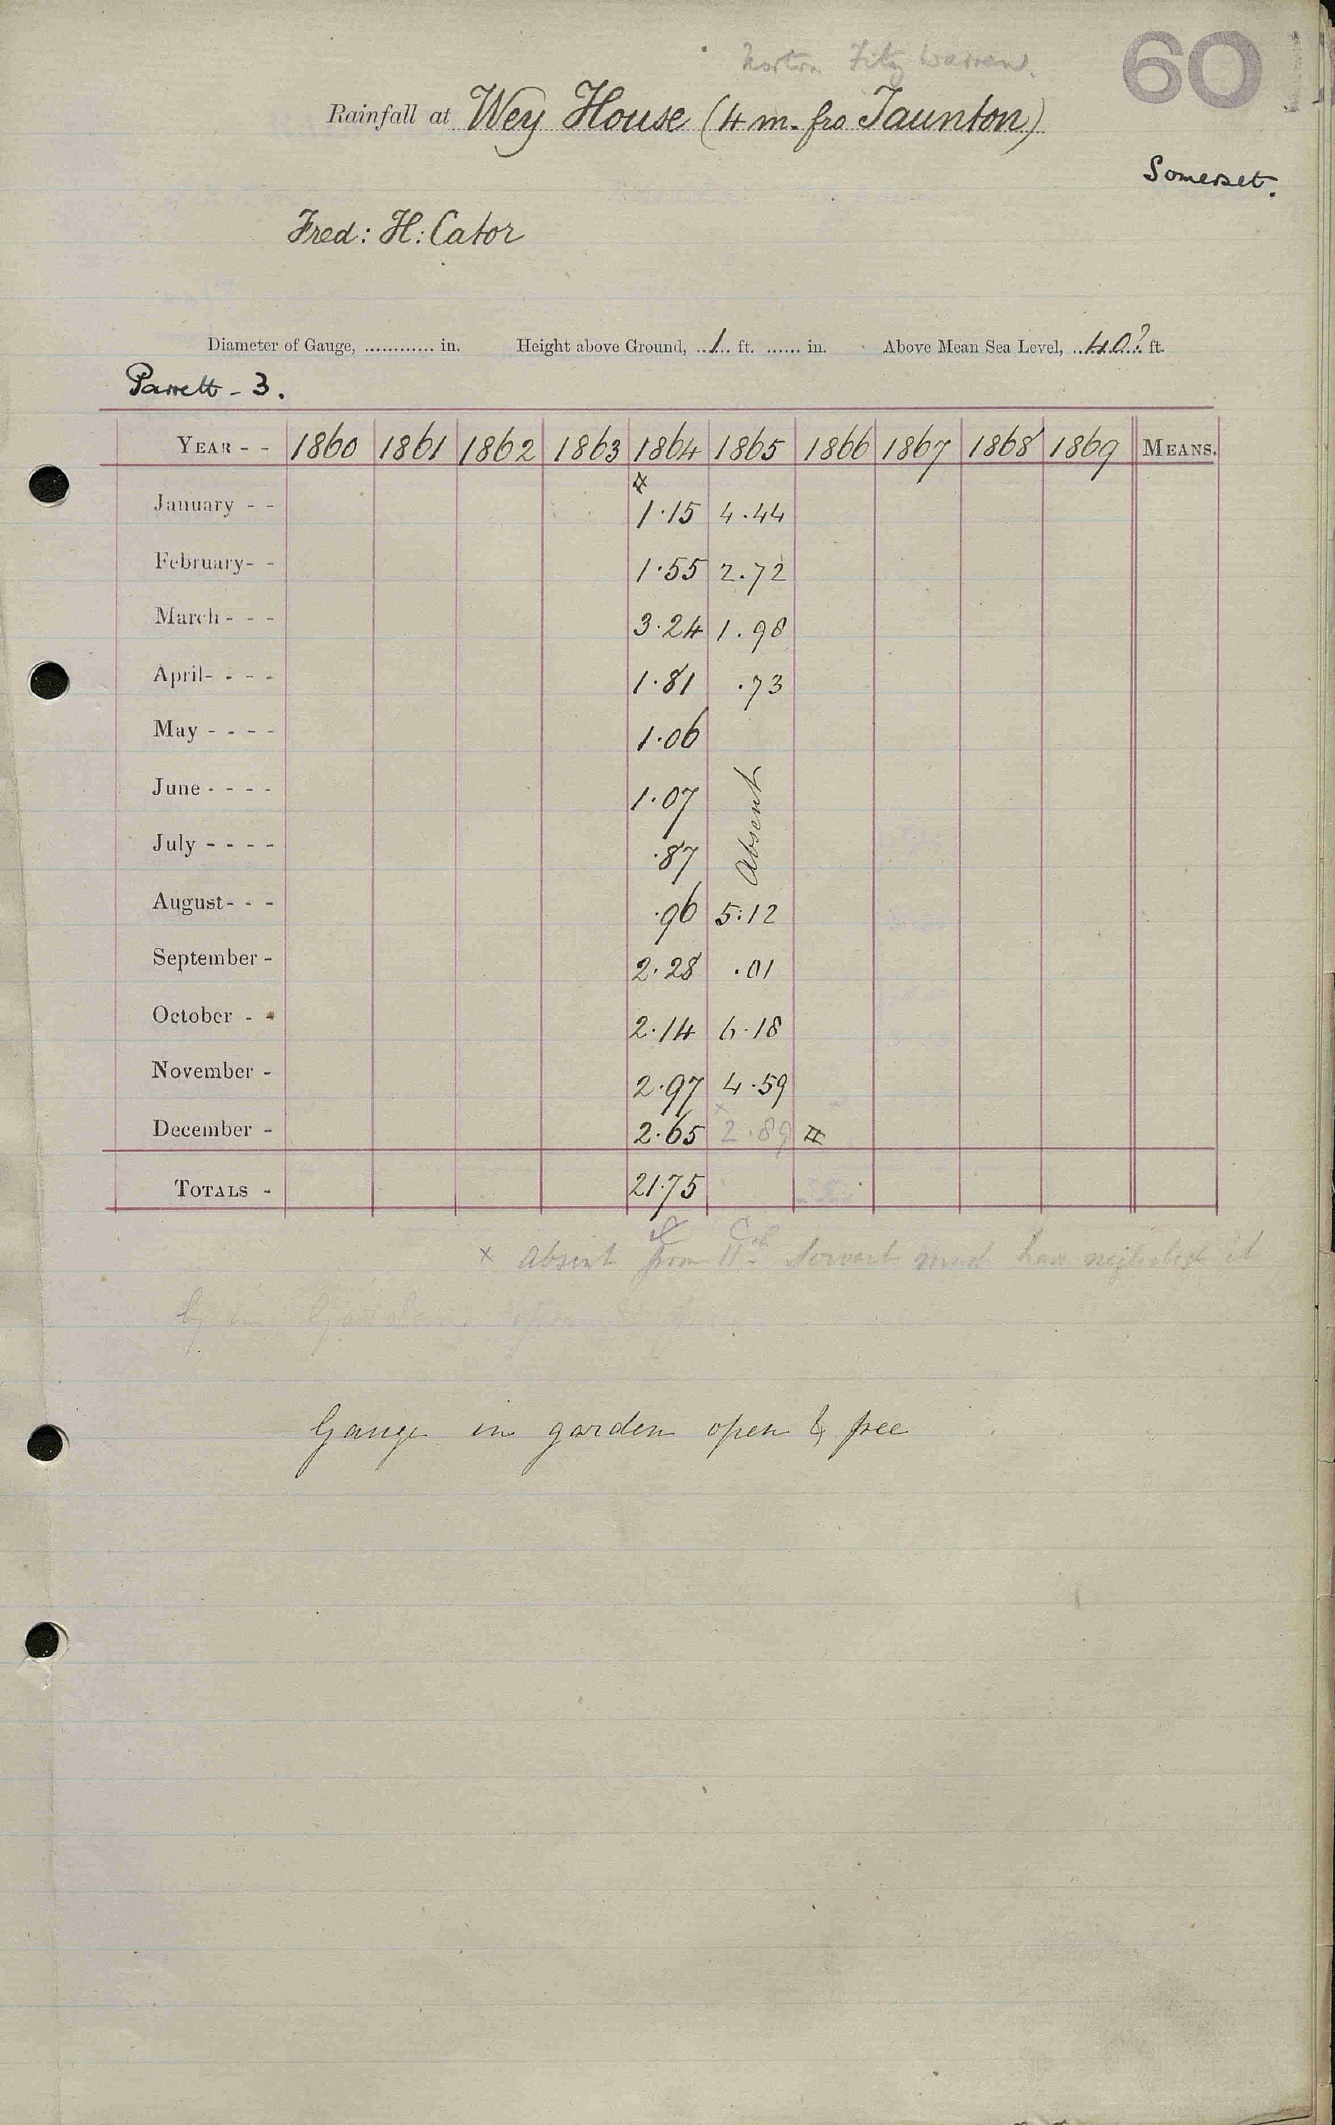 Norton Fitz Warren.
60
Rainfall at Wey House (4 m. fro Taunton)
Somerset.
Fred: H: Cator
Diameter of Gauge, ............ in. Height above Ground, ..1.. ft. ...... in. Above Mean Sea Level, ..40?.. ft.
Parrett - 3.
YEAR - - 1860 1861 1862 1863 1864 1865 1866 1867 1868 1869 MEANS.
January - - 1.15 4.44
February - - 1.55 2.72
March - - - 3.24 1.98
April - - - - 1.81 .73
May - - - - 1.06
June - - - - 1.07
Absent
July - - - - .87
August - - - .96 5.12
September - 2.28 .01
October - - 2.14 6.18
November - 2.97 4.59
December - 2.65 2.89
TOTALS - 21.75
x Absent from 11th Servants must have neglected it
Gauge in garden open & free